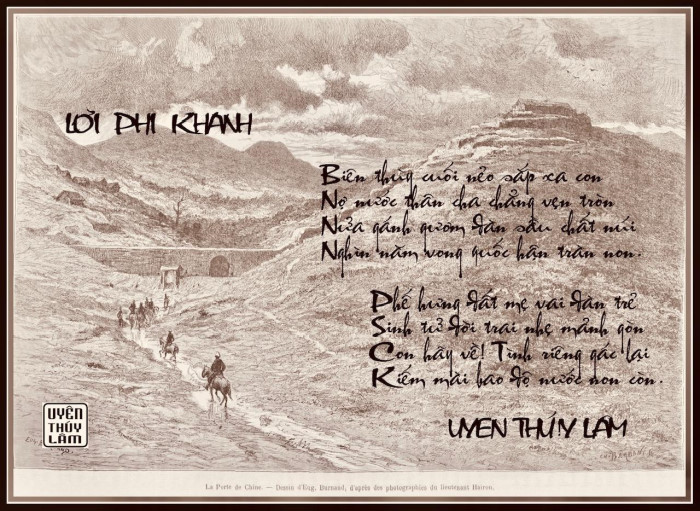 LỜI PHI KHANH
Biên thùy cuối nẻo sắp xa con
Nợ nước thân cha chẳng vẹn tròn
Nửa gánh gươm đàn sầu chất núi
Nghìn năm vong quốc hận tràn non.
Phế hưng đất mẹ vai đàn trẻ
Sinh tử đời trai nhẹ mảnh gòn
Con hãy về! Tình riêng gác lại
Kiếm mài bao độ nước non còn.
UYÊN THÚY LÂM
UYÊN
THÚY
LÂM
La Porte de Chine. — Dessin d'Eug. Burnand, d'après des photographies du lieutenant